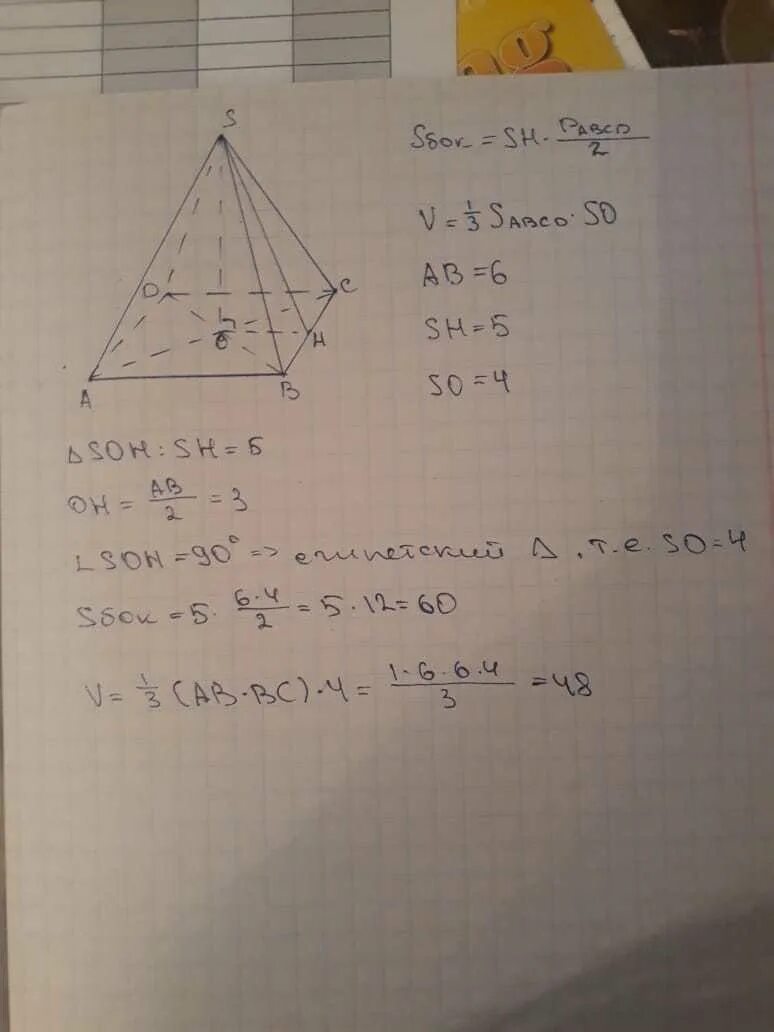 ng
S
D
C
O
H
A
B
Sбок = SH · P_ABCD / 2
V = 1/3 S_ABCD · SO
AB = 6
SH = 5
SO = 4
△SOH : SH = 5
OH = AB/2 = 3
∠SOH = 90° => египетский △, т.е. SO = 4
Sбок = 5 · 6·4/2 = 5 · 12 = 60
V = 1/3 (AB · BC) · 4 = 1·6·6·4/3 = 48